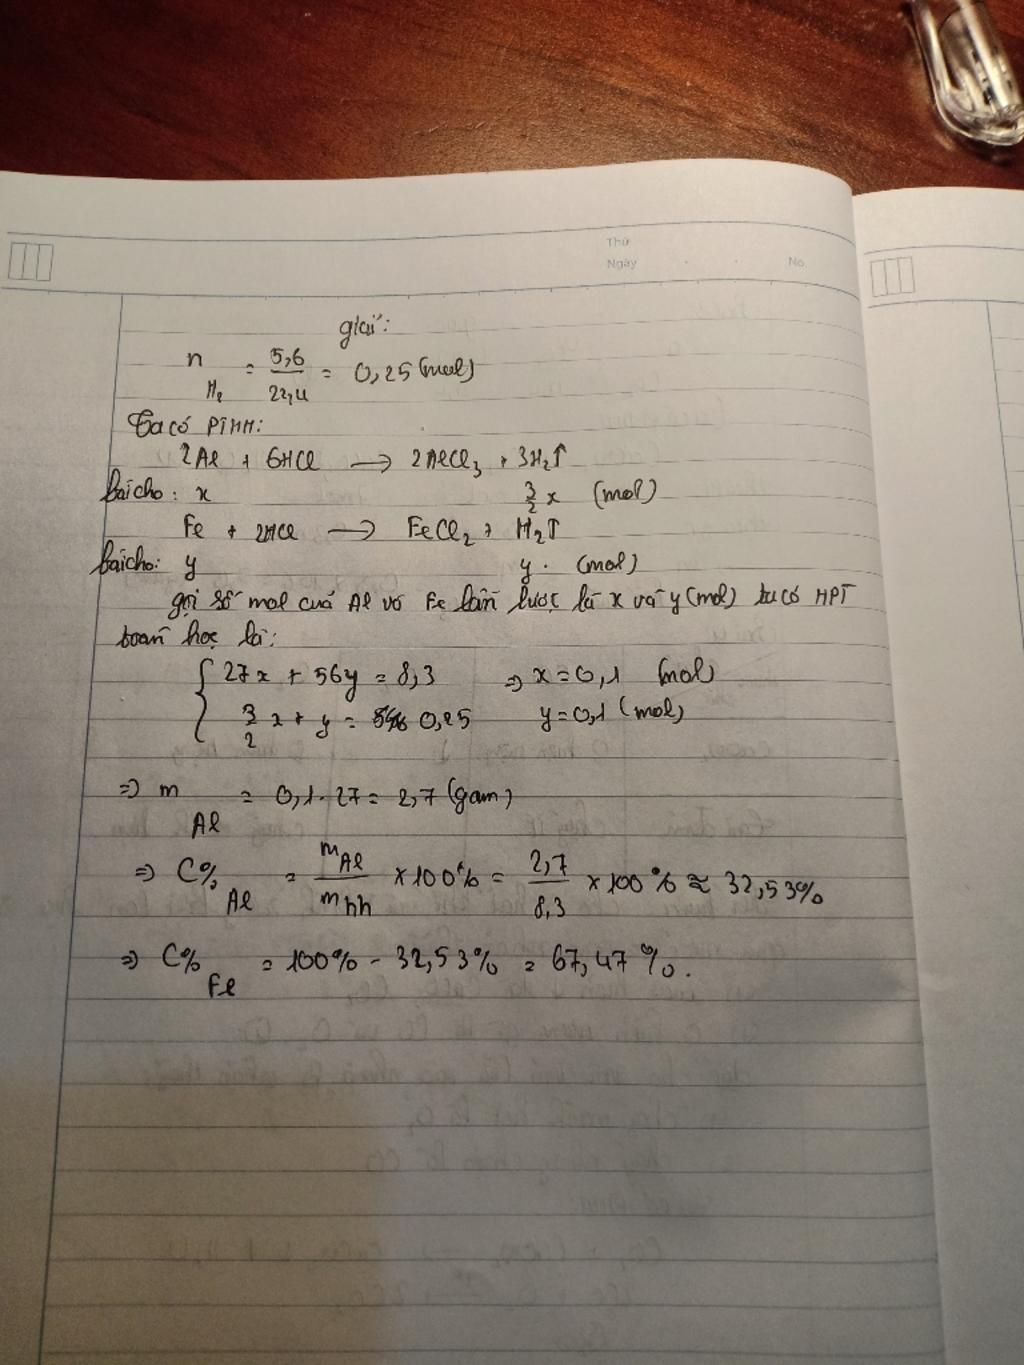 Thứ
Ngày No.
giải:
n H₂ = 5,6/22,4 = 0,25 (mol)
Ta có PTHH:
2Al + 6HCl → 2AlCl₃ + 3H₂↑
bài cho: x 3/2 x (mol)
Fe + 2HCl → FeCl₂ + H₂↑
bài cho: y y. (mol)
gọi số mol cuả Al và Fe lần lược là x và y (mol) ta có HPT
toán học là:
{ 27x + 56y = 8,3 ⇒ x = 0,1 (mol)
3/2 x + y = 0,25 y = 0,1 (mol)
⇒ m Al = 0,1 . 27 = 2,7 (gam)
⇒ C% Al = mAl/mhh × 100% = 2,7/8,3 × 100% ≈ 32,53%
⇒ C% Fe = 100% - 32,53% = 67,47%.